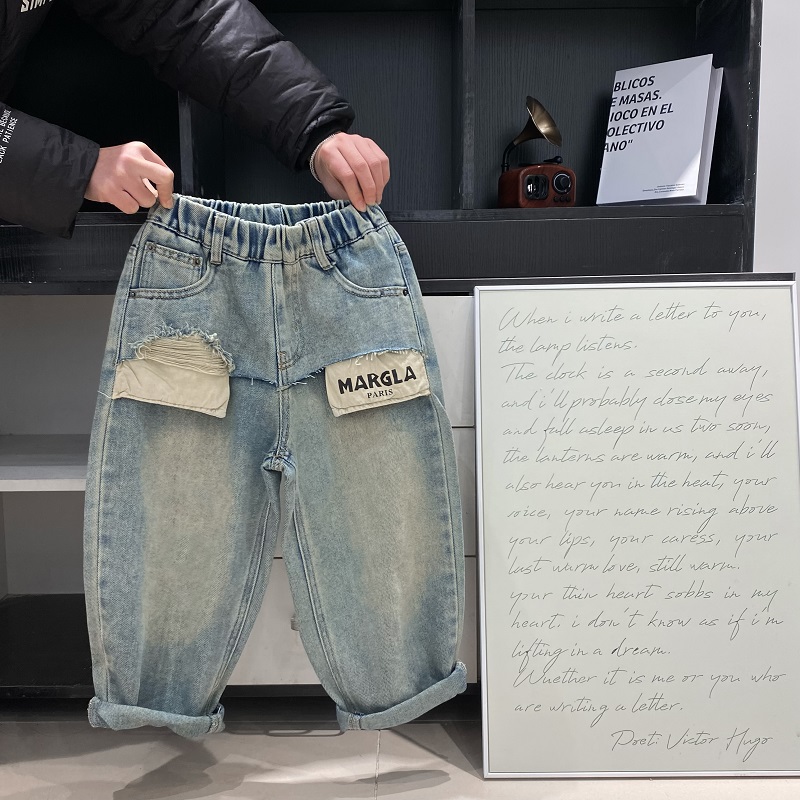 SIMPL
BLICOS
E MASAS.
IOCO EN EL
OLECTIVO
ANO"
LACK PATIENCE
MARGLA
PARIS
When i write a letter to you,
the lamp listens.
The clock is a second away,
and i'll probably close my eyes
and fall asleep in us two soon,
the lanterns are warm, and i'll
also hear you in the heat, your
voice, your name rising above
your lips, your caress, your
last warm love, still warm.
your thin heart sobbs in my
heart. i don't know as if i'm
lifting in a dream.
Wuether it is me or you who
are writing a letter.
Poet: Victor Hugo